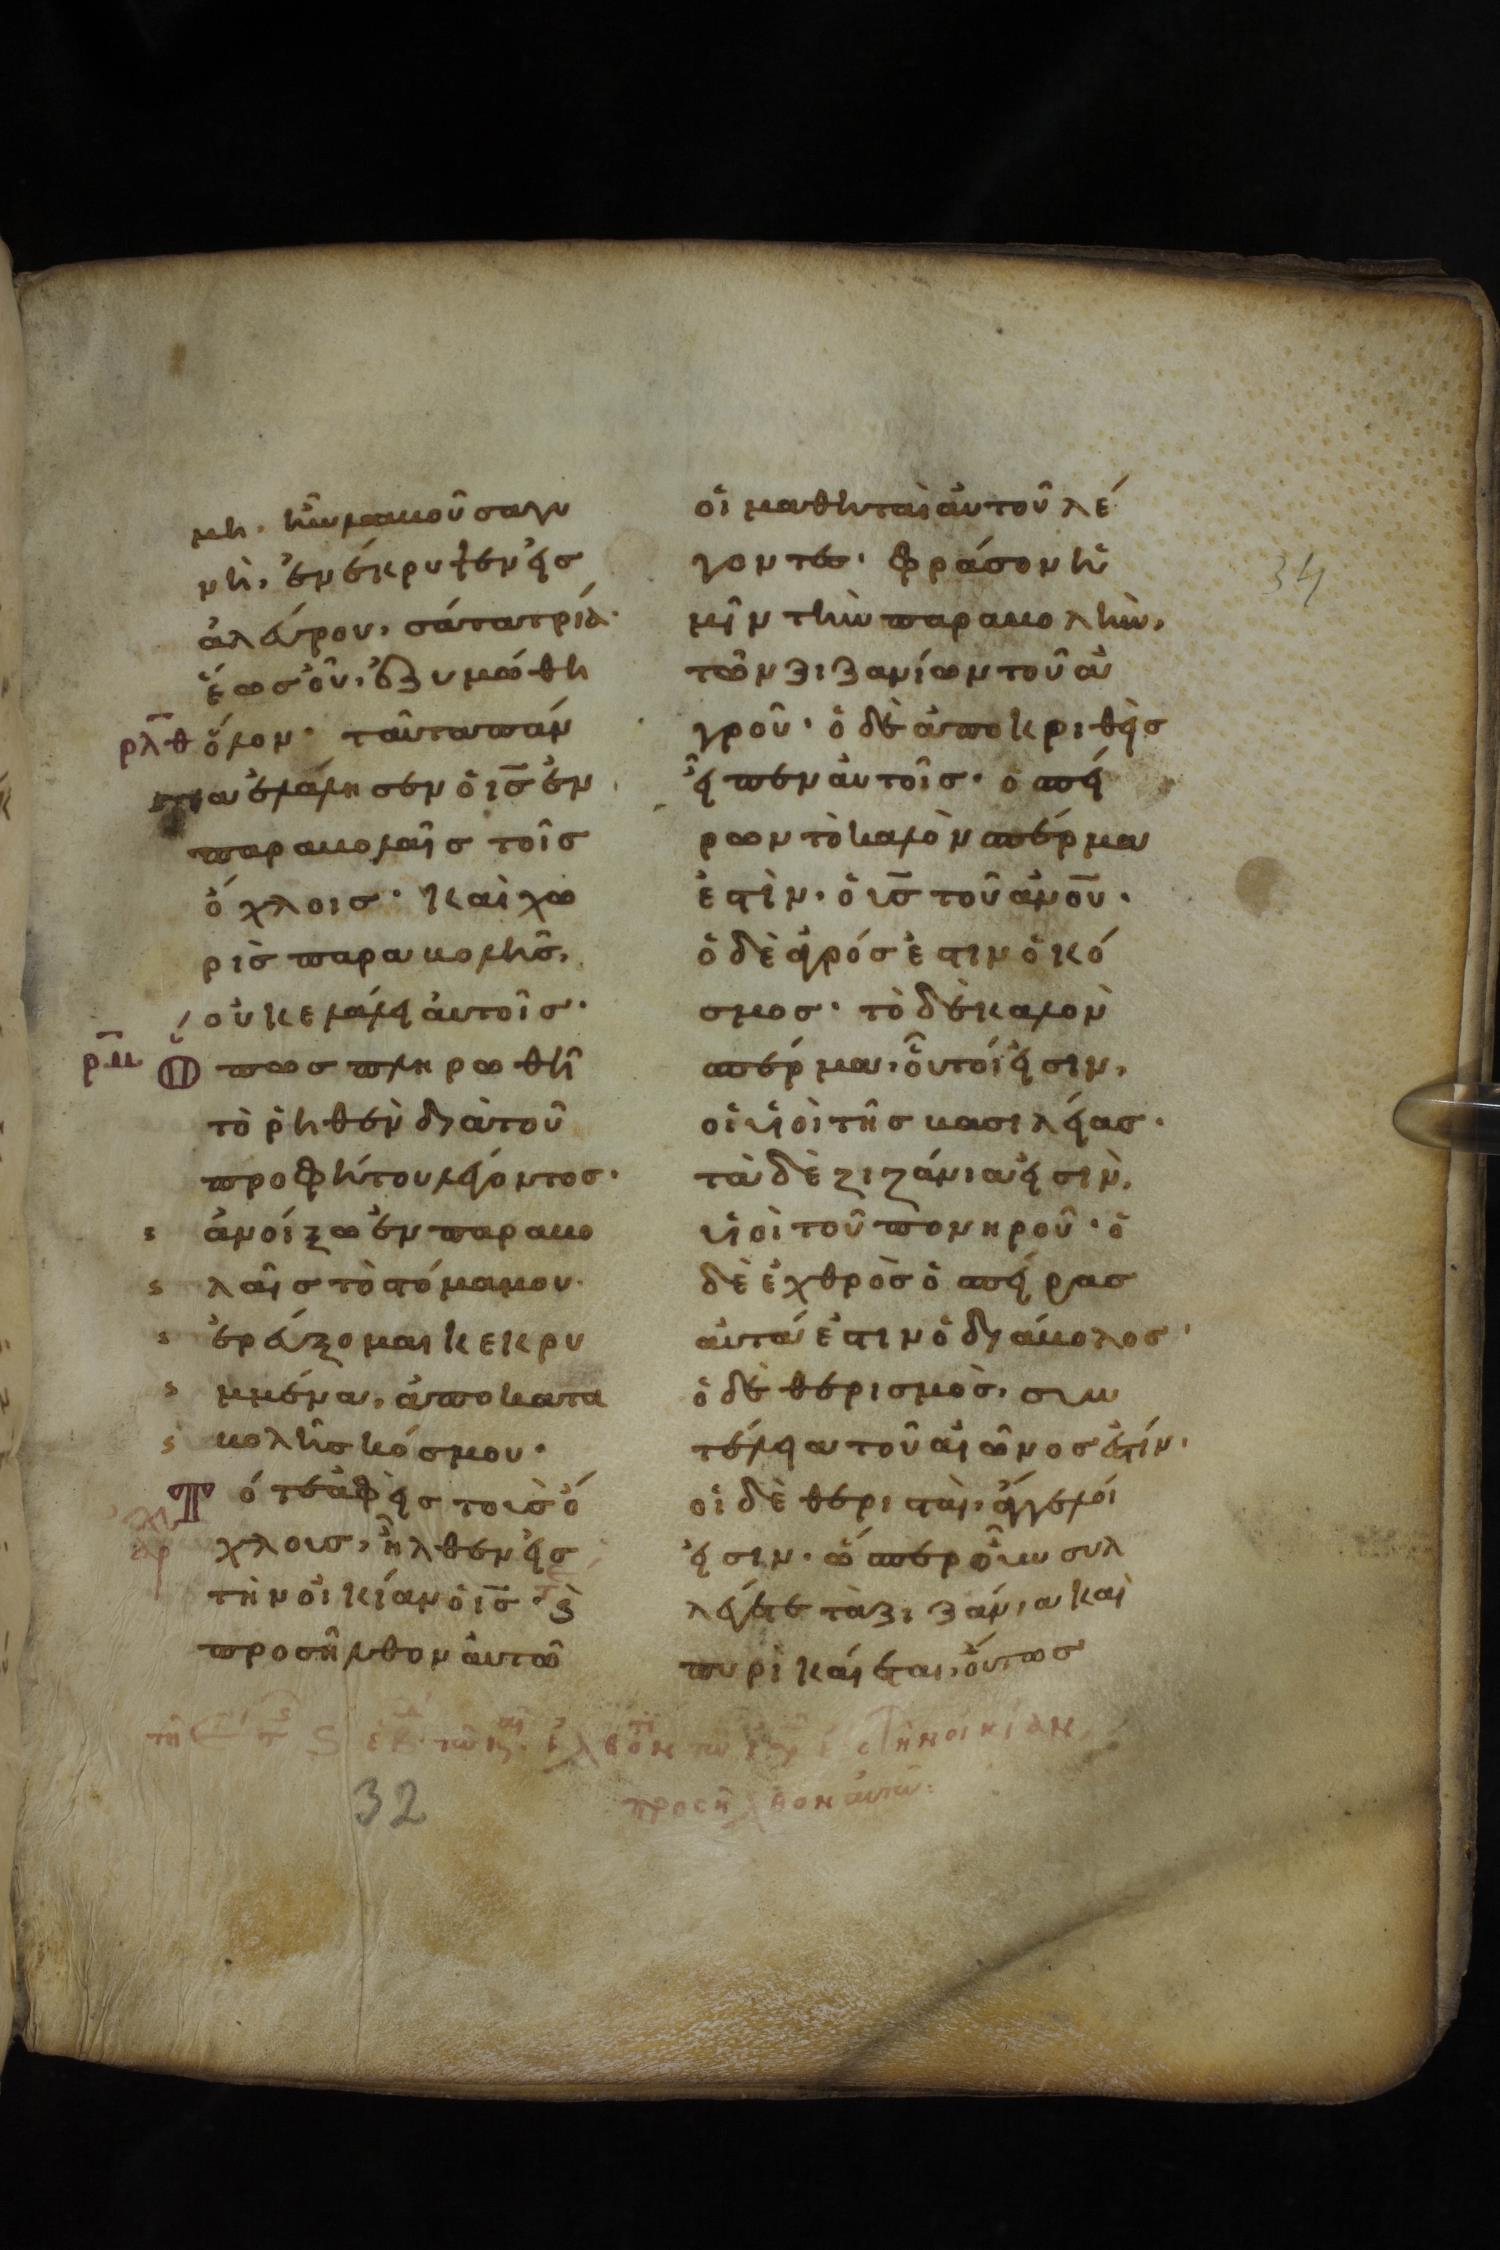 μη· ἣν λαβοῦσα γυ
νὴ, ἐνέκρυψεν εἰς
ἀλεύρου, σάτα τρία·
ἕως οὗ, ἐζυμώθη
ρλθ ὅλον· ταῦτα πάν
τα ἐλάλησεν ὁ ις̅ ἐν
παραβολαῖς τοῖς
ὄχλοις· καὶ χω
ρὶς παραβολῆς,
οὐκ ἐλάλει αὐτοῖς·
ρμ Ὅπως πληρωθῆ
τὸ ῥηθὲν διὰ τοῦ
προφήτου λέγοντος·
ἀνοίξω ἐν παραβο
λαῖς τὸ στόμα μου·
ἐρεύξομαι κεκρυ
μμένα, ἀπὸ κατα
βολῆς κόσμου·
Τότε ἀφεὶς τοὺς ὄ
χλους, ἦλθεν εἰς
τὴν οἰκίαν ὁ ις̅· ϗ
προσῆλθον αὐτῶ
οἱ μαθηταὶ αὐτοῦ λέ
γοντες· φράσον ἡ
μῖν τὴν παραβολὴν,
τῶν ζιζανίων τοῦ ἀ
γροῦ· ὁ δὲ ἀποκριθεὶς
εἶπεν αὐτοῖς· ὁ σπεί
ρων τὸ καλὸν σπέρμα
ἐστὶν· ὁ υς̅ τοῦ ἀνου̅·
ὁ δὲ ἀγρός ἐστιν ὁ κό
σμος· τὸ δὲ καλὸν
σπέρμα, οὗτοί εἰσιν,
οἱ υἱοὶ τῆς βασιλείας·
τὰ δὲ ζιζάνια εἰσιν,
υἱοὶ τοῦ πονηροῦ· ὁ
δὲ ἐχθρὸς ὁ σπείρας
αὐτά ἐστιν ὁ διάβολος·
ὁ δὲ θερισμὸς, συν
τέλεια τοῦ αἰῶνος ἐστίν·
οἱ δὲ θερισταὶ, ἄγγελοί
εἰσιν· ὥσπερ οὖν συλ
λέγεται τὰ ζιζάνια καὶ
πυρὶ καίεται, οὕτως
34
εἰς τὴν οἰκίαν
προσῆλθον αὐτῶ:
32